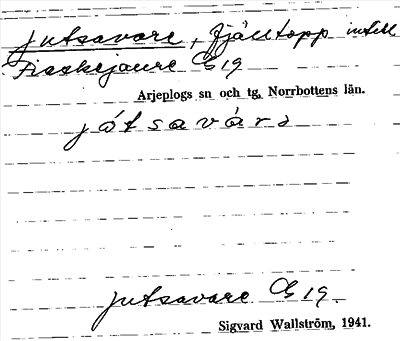 jutsavare, fjälltopp intill
Fiaskejaure G 19
Arjeplogs sn och tg, Norrbottens län.
jåtsavårə
jutsavare G 19.
Sigvard Wallström, 1941.